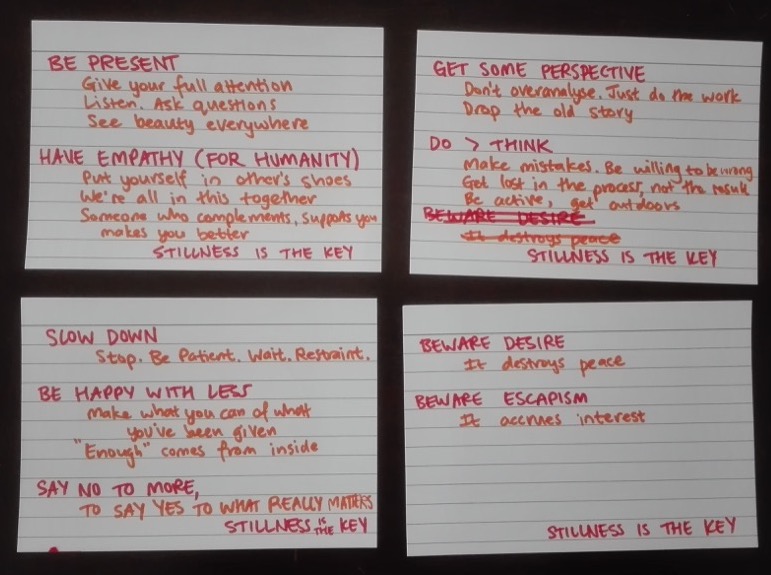 BE PRESENT
Give your full attention
Listen. Ask questions
See beauty everywhere
HAVE EMPATHY (FOR HUMANITY)
Put yourself in other's shoes
We're all in this together
Someone who complements, supports you
makes you better
STILLNESS IS THE KEY
GET SOME PERSPECTIVE
Don't overanalyse. Just do the work
Drop the old story
DO > THINK
Make mistakes. Be willing to be wrong
Get lost in the process, not the result
Be active, get outdoors
BEWARE DESIRE
It destroys peace
STILLNESS IS THE KEY
SLOW DOWN
Stop. Be Patient. Wait. Restraint.
BE HAPPY WITH LESS
Make what you can of what
you've been given
"Enough" comes from inside
SAY NO TO MORE,
TO SAY YES TO WHAT REALLY MATTERS
STILLNESS IS THE KEY
BEWARE DESIRE
It destroys peace
BEWARE ESCAPISM
It accrues interest
STILLNESS IS THE KEY